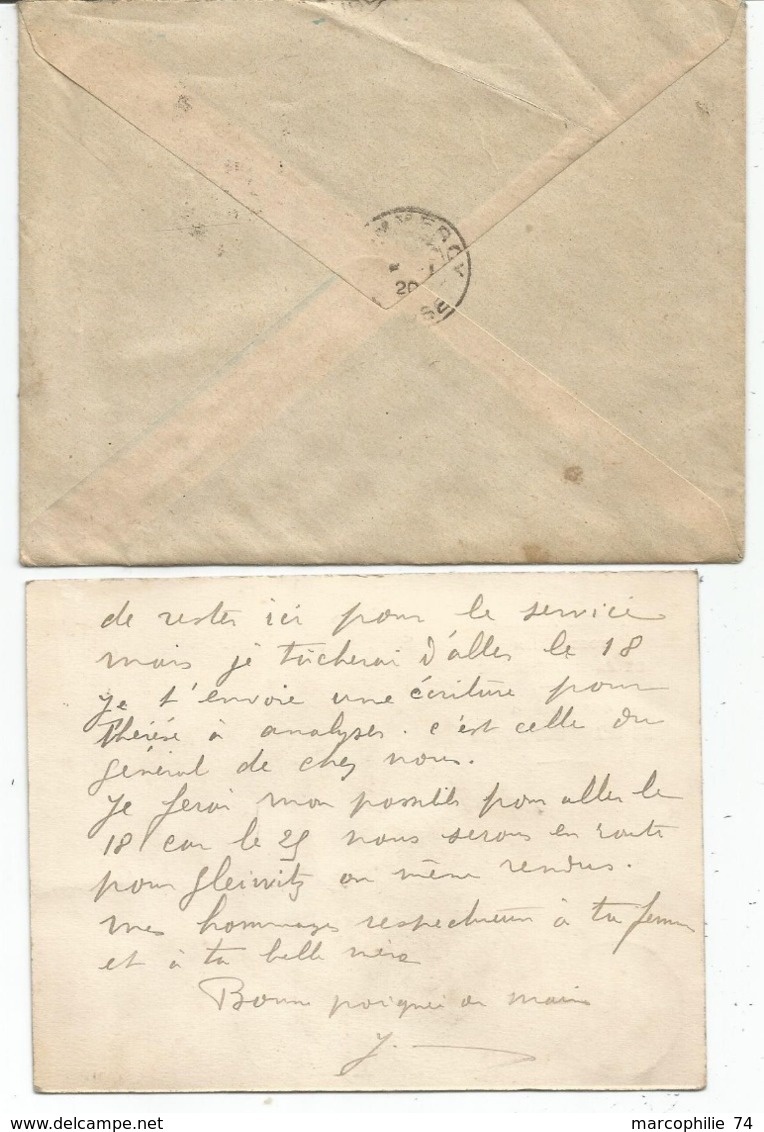 MMERCY
20
SE
de rester ici pour le service
mais je tâcherai d'aller le 18
Je t'envoie une écriture pour
Thérèse à analyser. c'est celle du
général de chez nous.
Je ferai mon possible pour aller le
18 car le 25 nous serons en route
pour Gleiwitz ou même rendus.
mes hommages respectueux à ta femme
et à ta belle mère
Bonne poignée de main
J.
marcophilie 74